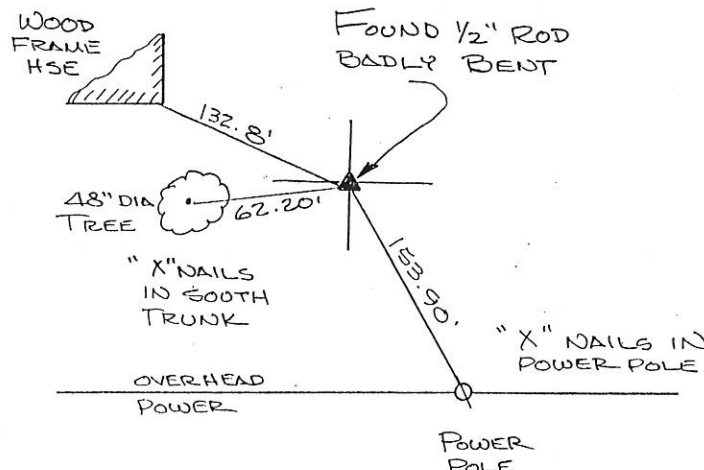 WOOD
FRAME
HSE
FOUND 1/2" ROD
BADLY BENT
132.8'
48" DIA
TREE
62.20'
"X" NAILS
IN SOUTH
TRUNK
153.90'
"X" NAILS IN
POWER POLE
OVERHEAD
POWER
POWER
POLE